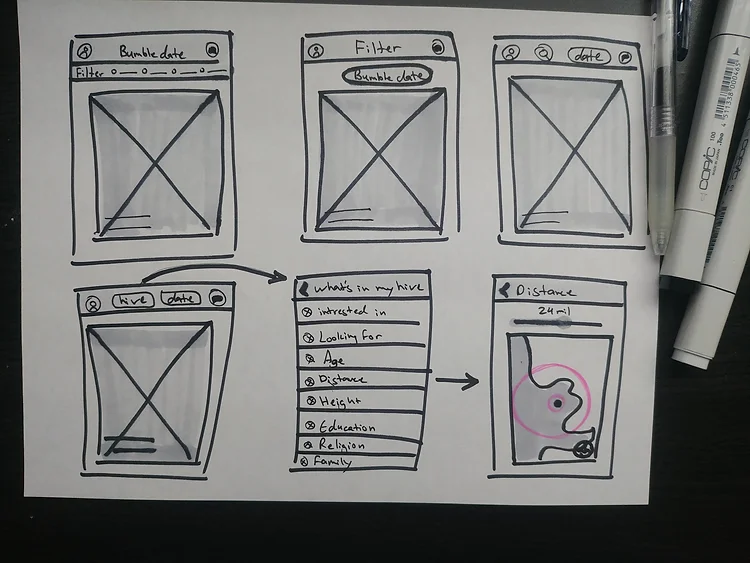 Bumble date
Filter
Filter
Bumble date
date
hive date
what's in my hive
intrested in
Looking for
Age
Distance
Height
Education
Religion
Family
Distance
24 mil
COPIC
100
4 511338 000465